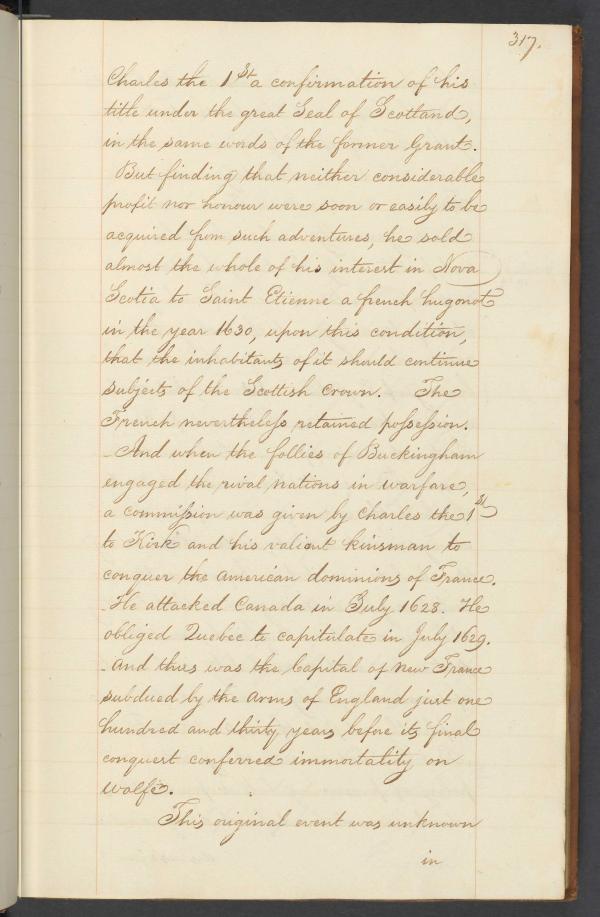 317.
Charles the 1st a confirmation of his
title under the great Seal of Scotland,
in the same words of the former Grant.
But finding that neither considerable
profit nor honour were soon or easily to be
acquired from such adventures, he sold
almost the whole of his interest in Nova
Scotia to Saint Etienne a french hugonot
in the year 1630, upon this condition,
that the inhabitants of it should continue
subjects of the Scottish Crown. The
French nevertheless retained possession.
And when the follies of Buckingham
engaged the rival nations in warfare,
a commission was given by Charles the 1st
to Kirk and his valiant kinsman to
conquer the American dominions of France.
He attacked Canada in July 1628. He
obliged Quebec to capitulate in July 1629.
And thus was the Capital of New France
subdued by the arms of England just one
hundred and thirty years before its final
conquest conferred immortality on
Wolfe.
This original event was unknown
in